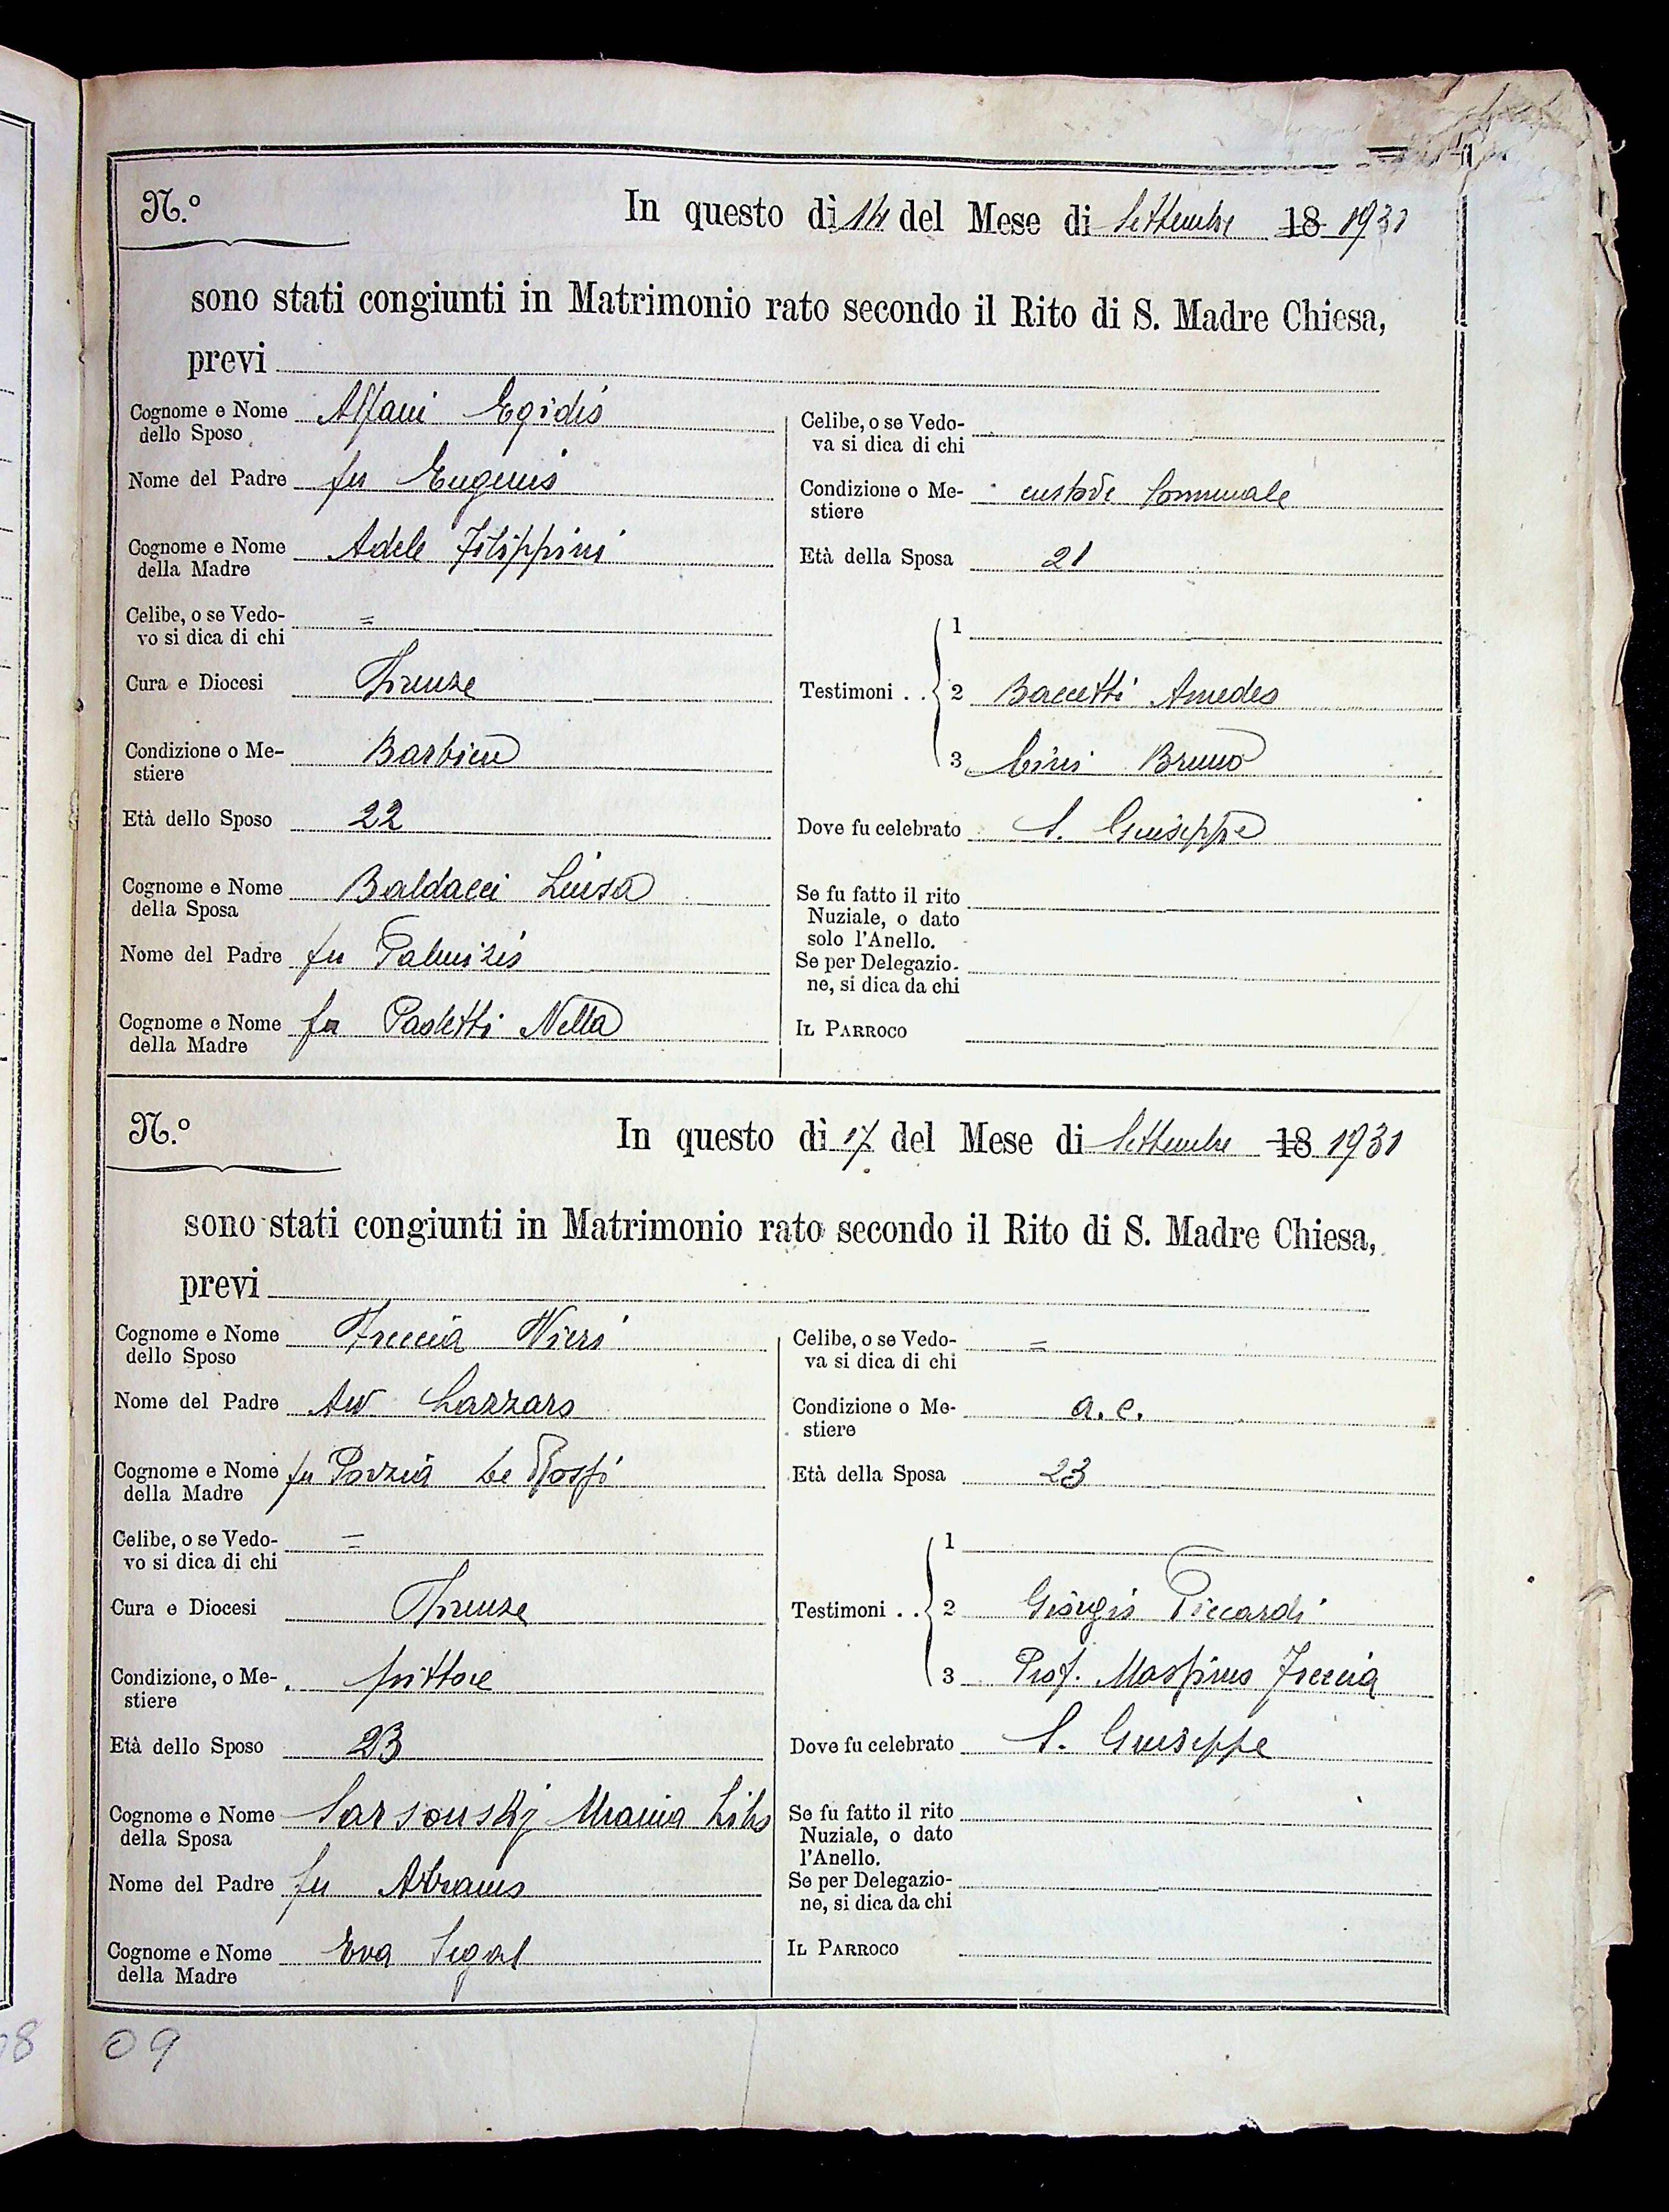 N.º In questo dì 14 del Mese di Settembre 18 1931
sono stati congiunti in Matrimonio rato secondo il Rito di S. Madre Chiesa,
previ
Cognome e Nome dello Sposo Alfani Egidio
Nome del Padre fu Eugenio
Cognome e Nome della Madre Adele Filippini
Celibe, o se Vedovo si dica di chi =
Cura e Diocesi Firenze
Condizione o Mestiere Barbiere
Età dello Sposo 22
Cognome e Nome della Sposa Baldacci Luisa
Nome del Padre fu Palmizio
Cognome e Nome della Madre fu Paoletti Nella
Celibe, o se Vedova si dica di chi
Condizione o Mestiere custode Comunale
Età della Sposa 21
Testimoni . . 1
2 Baccetti Amedeo
3 Cini Bruno
Dove fu celebrato S. Giuseppe
Se fu fatto il rito Nuziale, o dato solo l'Anello.
Se per Delegazione, si dica da chi
IL PARROCO
N.º In questo dì 17 del Mese di Settembre 18 1931
sono stati congiunti in Matrimonio rato secondo il Rito di S. Madre Chiesa,
previ
Cognome e Nome dello Sposo Freccia Nieri
Nome del Padre Avv Lazzaro
Cognome e Nome della Madre fu Porzia De Rossi
Celibe, o se Vedovo si dica di chi =
Cura e Diocesi Firenze
Condizione, o Mestiere pittore
Età dello Sposo 23
Cognome e Nome della Sposa Sarsonskj
Nome del Padre fu Abramo
Cognome e Nome della Madre Eva Segal
Celibe, o se Vedova si dica di chi =
Condizione o Mestiere a. c.
Età della Sposa 23
Testimoni . . 1
2 Giorgio Piccardi
3 Prof. Massimo Freccia
Dove fu celebrato S. Giuseppe
Se fu fatto il rito Nuziale, o dato l'Anello.
Se per Delegazione, si dica da chi
IL PARROCO
09